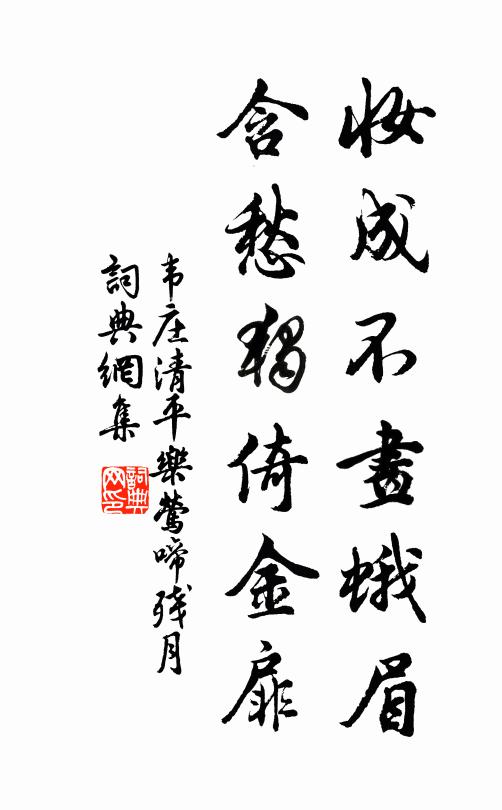 妆成不畫蛾眉
含愁獨倚金扉
韦庄清平樂鶯啼殘月
詞典網集
詞典網印